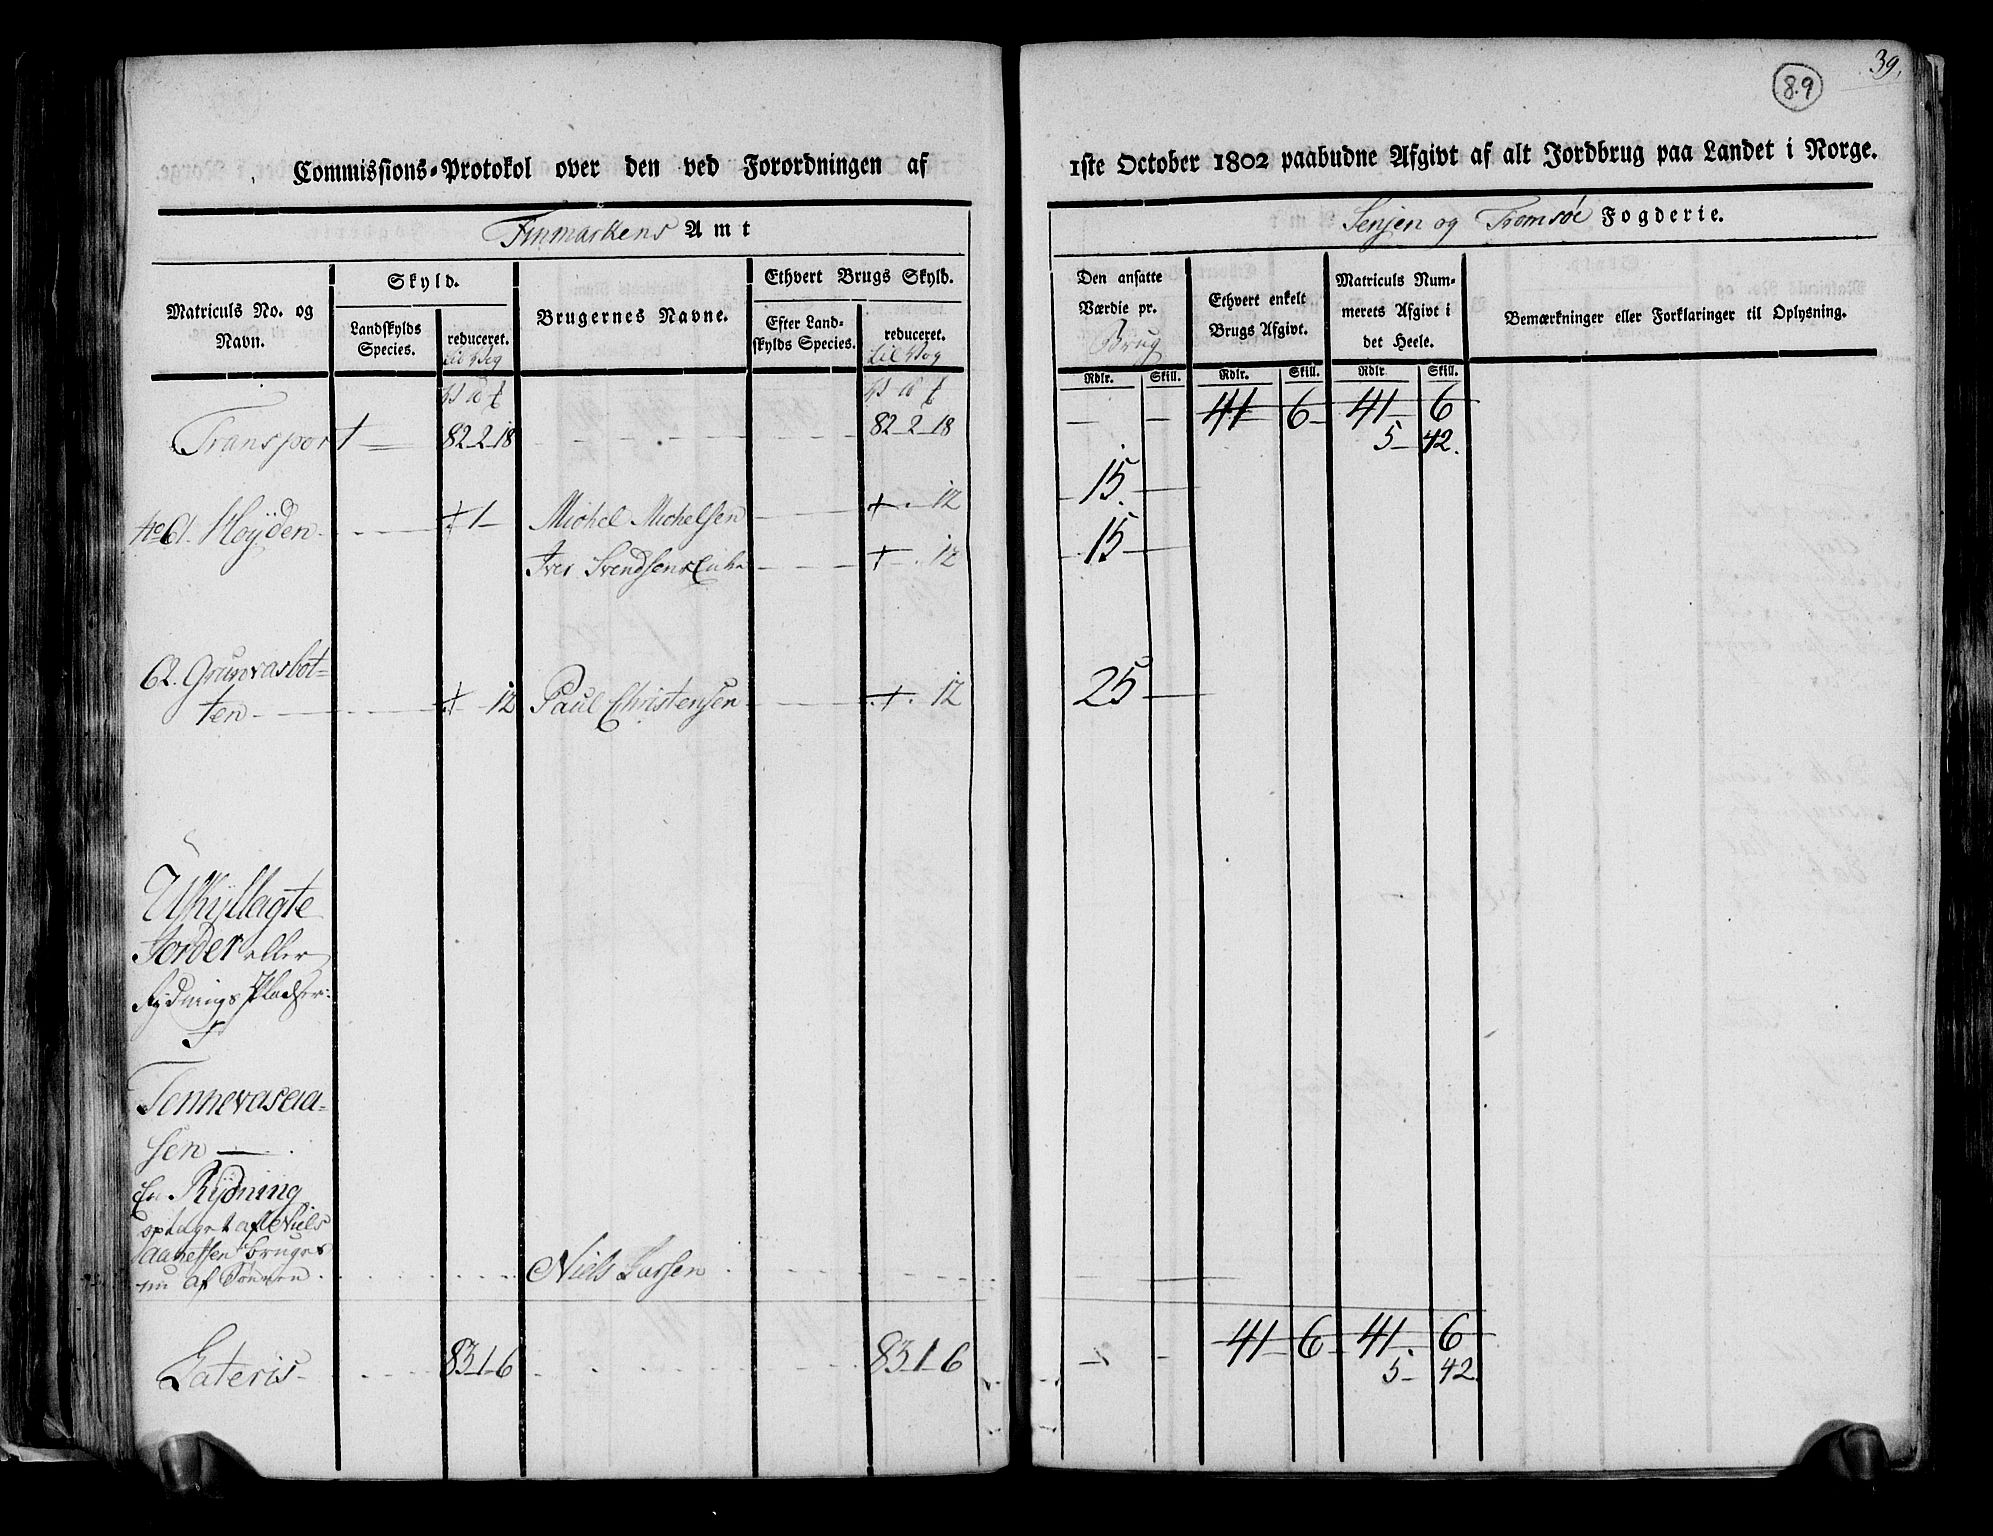 39.
89
Commissions-Protokol over den ved Forordningen af
1ste October 1802 paabudne Afgivt af alt Jordbrug paa Landet i Norge.
Finmarkens Amt
Senjen og Tromsøe Fogderie.
Matriculs No. og Navn.
Skyld.
Landskylds Species.
reduceret.
Brugernes Navne.
Ethvert Brugs Skyld.
Efter Landskylds Species.
reduceret.
til Vog
Den ansatte Værdie pr.
Brug
Ethvert enkelt Brugs Afgivt.
Matriculs Nummerets Afgivt i det Heele.
Bemærkninger eller Forklaringer til Oplysning.
Rdlr. Skill. Rdlr. Skill. Rdlr. Skill.
Transport 82 2 18 82 2 18 41 6 41 6
5 42.
No 61. Høyden 1 Michel Michelsen 12 15
Iver Svendsens Enke 12 15
62. Grunvasbot-
ten 12 Paul Christensen 12 25
Uskyllagte
Jorder eller
Rydnings Pladser:
Tennevaseaa-
sen
En Rydning
optaget af Niels
Aanessen bruges
nu af Sønnen Niels Larsen
Lateris 83 1 6 83 1 6 41 6 41 6
5 42.